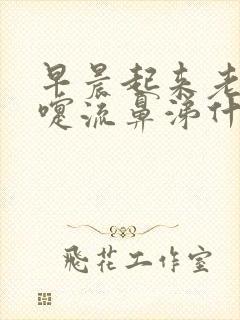 早晨起来老
嚏流鼻涕什
飛花工作室